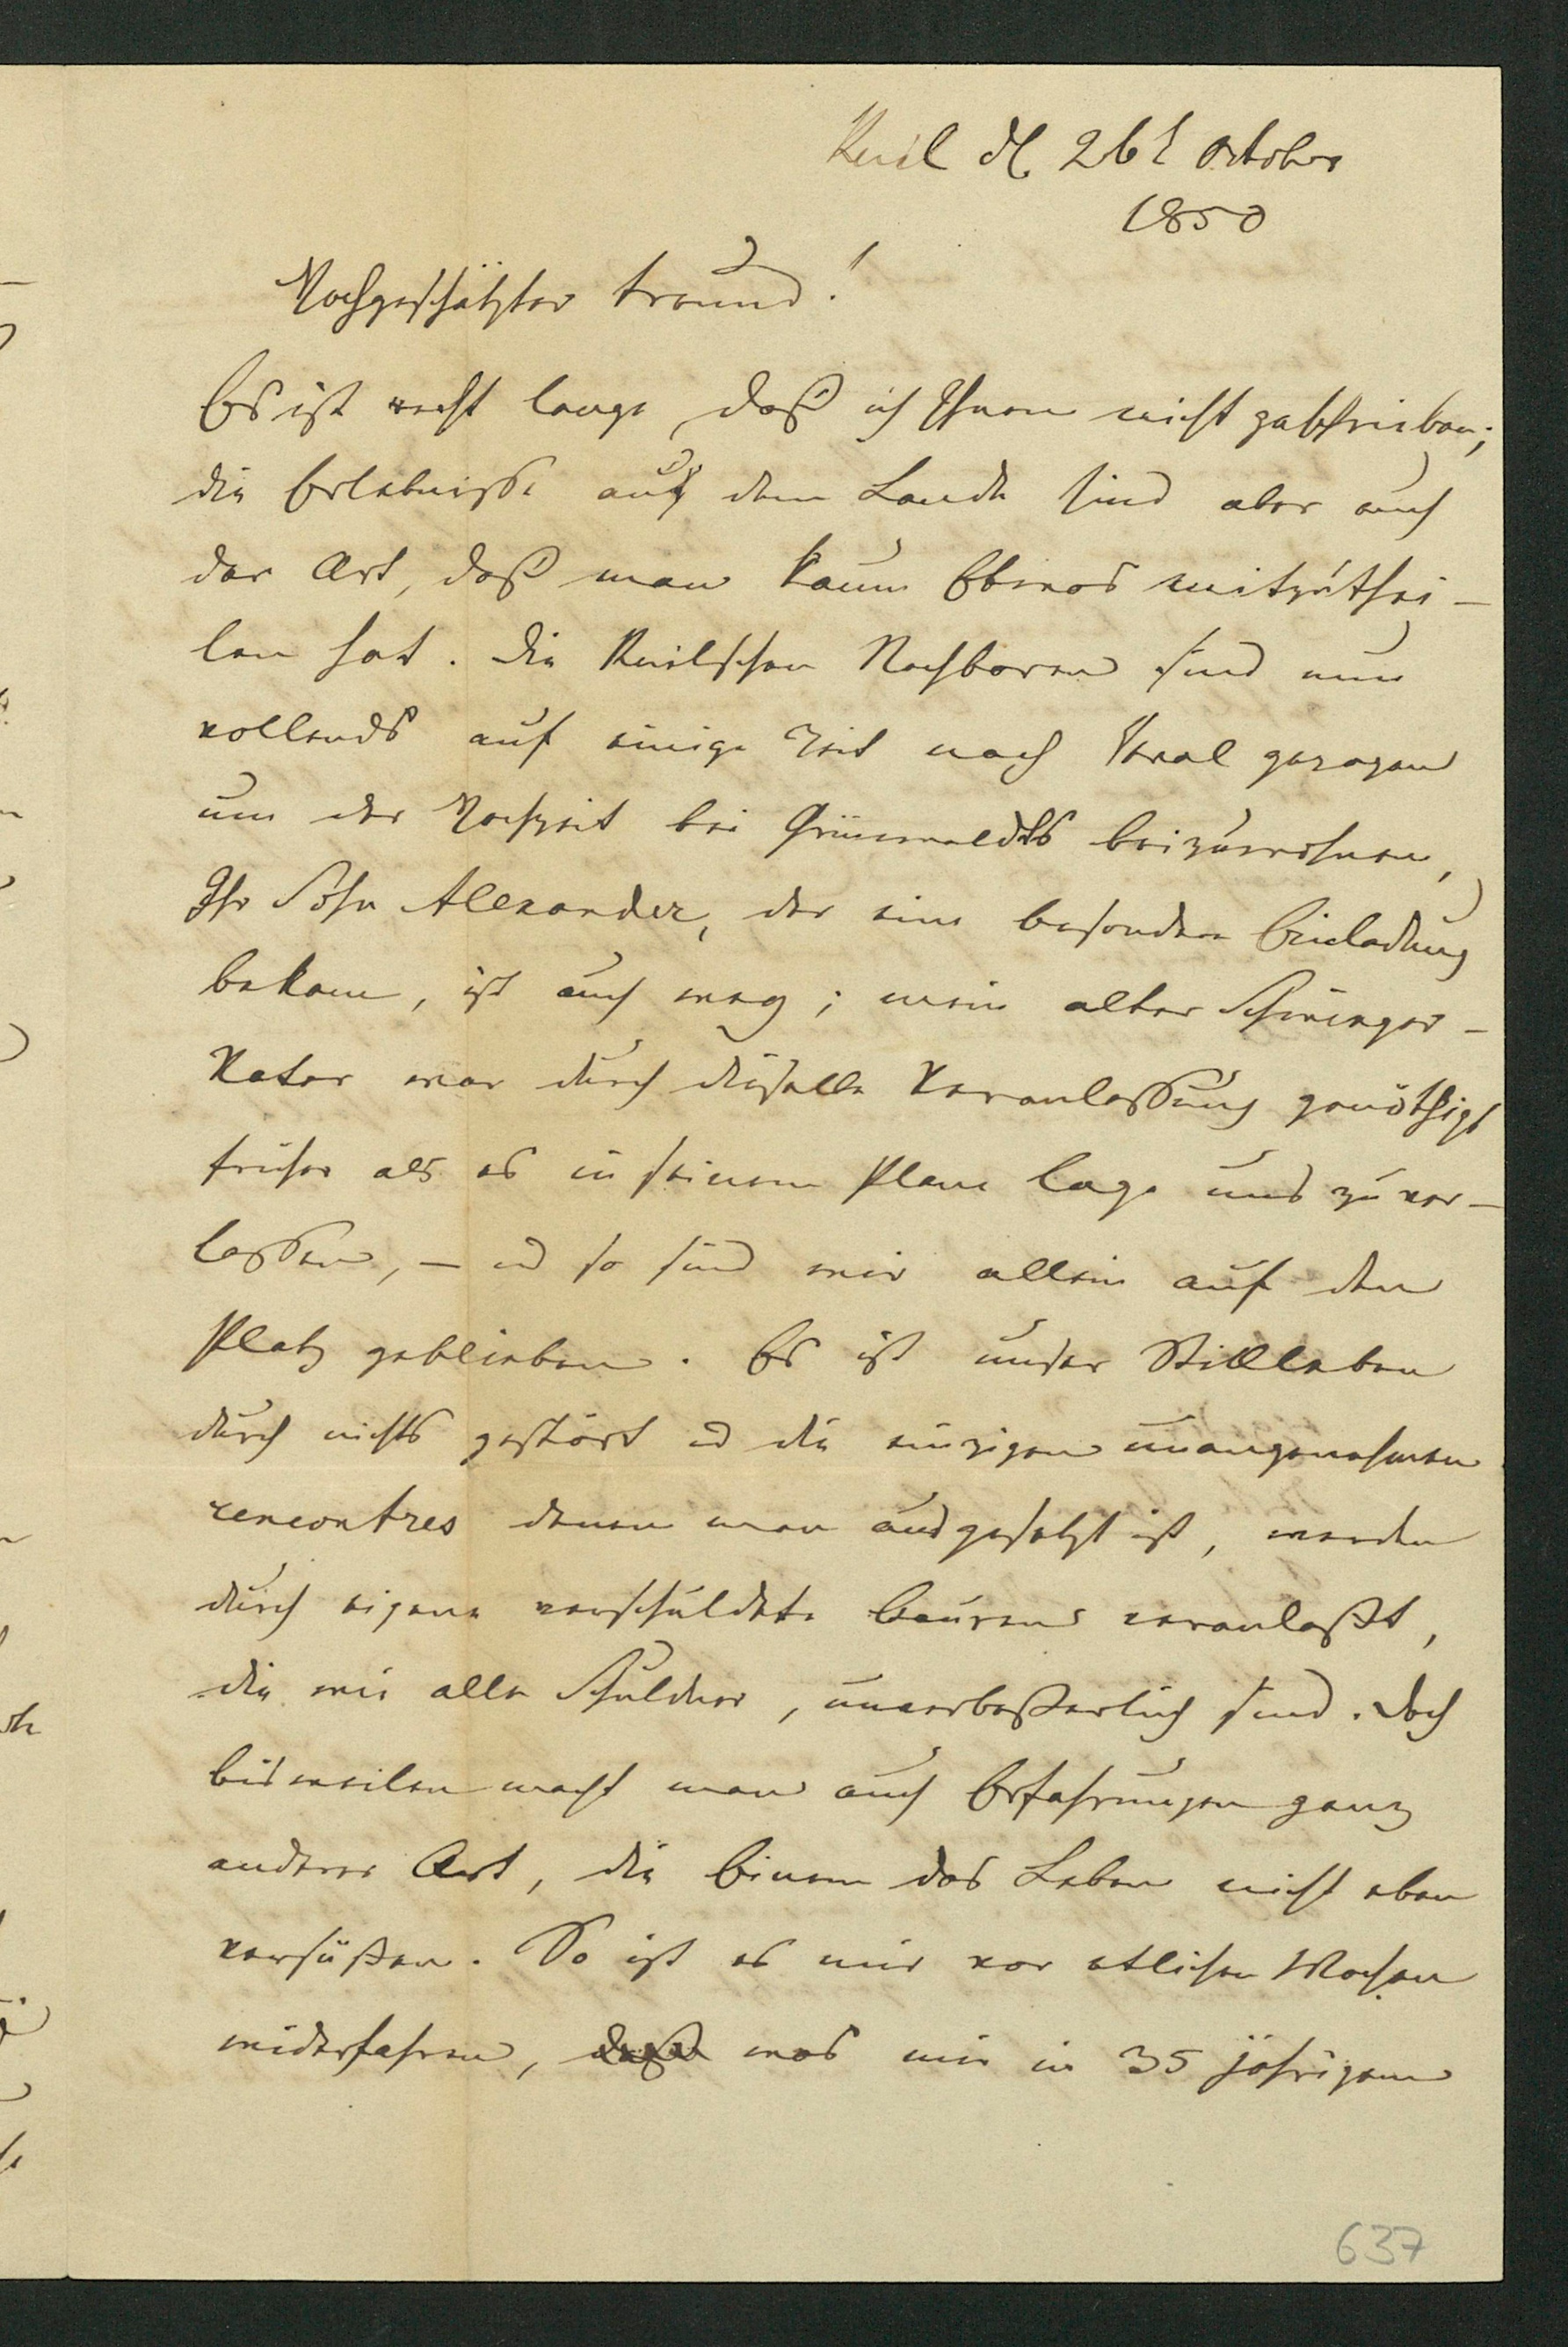 Kuil d. 26t October
1850
Hochgeschätzter Freund!
Es ist recht lange, daß ich Ihnen nicht geschrieben;
die Erlebnisse auf dem Lande sind aber auch
der Art, daß man kaum Etwas mitzuthei-
len hat. Die Kuilschen Nachbaren sind nun
vollends auf einige Zeit nach Reval gezogen
um der Hochzeit bei Grünewaldts beizuwohnen,
Ihr Sohn Alexander, der eine besondere Einladung
bekam, ist auch weg; mein alter Schwieger-
Vater war durch dieselbe Veranlassung genöthigt
früher als es in seinem Plane lage uns zu ver-
lassen, – und so sind wir allein auf dem
Platz geblieben. Es ist unser Stillleben
durch nichts gestört und die einzigen unangenehmen
rencontres denen man ausgesetzt ist, werden
durch eigene verschuldete Bauren veranlaßt,
die wie alle Schuldner, unverbeßerlich sind. Doch
bisweilen macht man auch Erfahrungen ganz
anderer Art, die Einem das Leben nicht eben
versüßen. So ist es mir vor etlichen Wochen
widerfahren, was mir in 35 jährigem
637